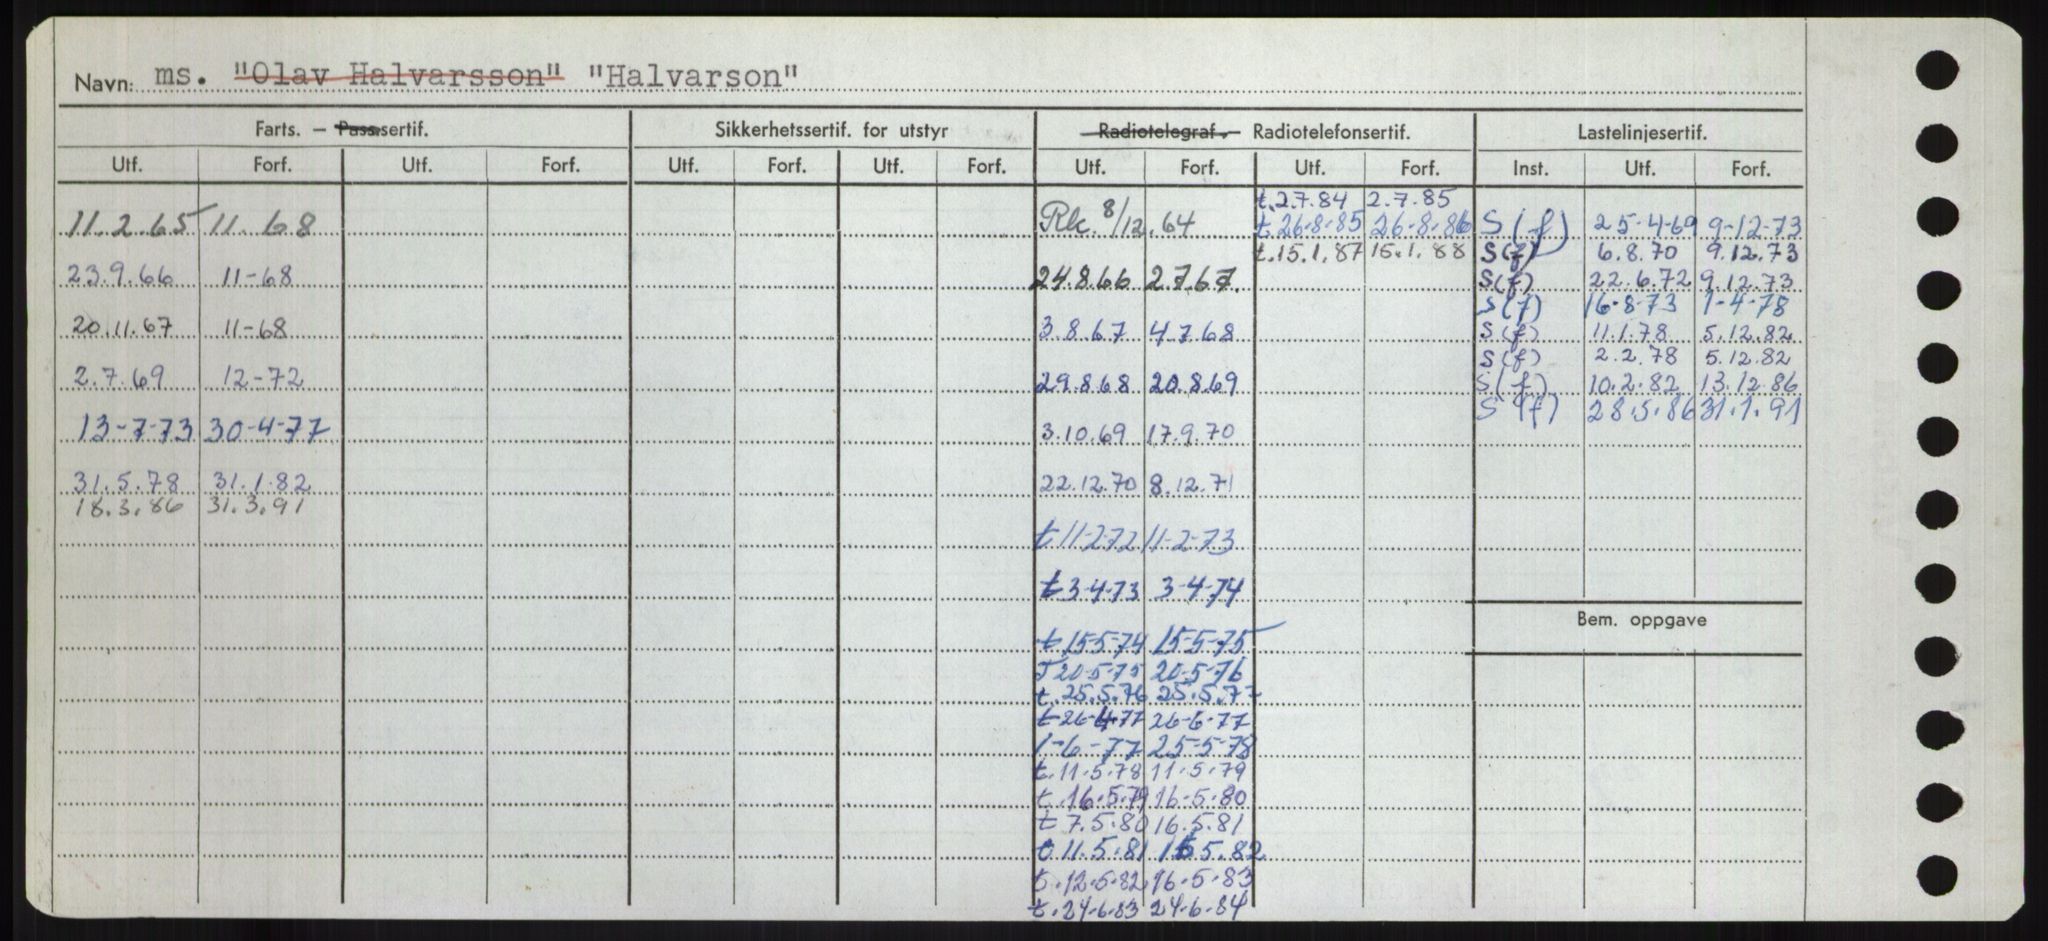 Navn: ms. "Olav Halvarsson" "Halvarson"
Farts. – Pass.sertif. Sikkerhetssertif. for utstyr Radiotelegraf. – Radiotelefonsertif. Lastelinjesertif.
Utf. Forf. Utf. Forf. Utf. Forf. Utf. Forf. Utf. Forf. Utf. Forf. Inst. Utf. Forf.
t.2.7.84 2.7.85
11.2.65 11.68 Rk. 8/12.64 t.26.8.85 26.8.86 S(f) 25-4-69 9-12-73
t.15.1.87 15.1.88 S(f) 6.8.70 9.12.73
23.9.66 11-68 24.8.66 2.7.67. S(f) 22.6.72 9.12.73
S(f) 16-8-73 1-4-78
20.11.67 11-68 3.8.67 4.7.68 S(f) 11.1.78 5.12.82
S(f) 2.2.78 5.12.82
2.7.69 12-72 29.8.68 20.8.69 S(f) 10.2.82 13.12.86
S(f) 28.5.86 31.1.91
13-7-73 30-4-77 3.10.69 17.9.70
31.5.78 31.1.82 22.12.70 8.12.71
18.3.86 31.3.91
t 11-2-72 11-2-73
t 3-4-73 3-4-74
Bem. oppgave
t 15-5-74 15-5-75
T 20-5-75 20-5-76
t.25.5.76 25.5.77
t 26-4-77 26-6-77
1-6-77 25-5-78
t.11.5.78 11.5.79
t.16.5.79 16.5.80
t 7.5.80 16.5.81
t 11.5.81 5.82
t.12.5.82 16.5.83
t.24.6.83 24.6.84